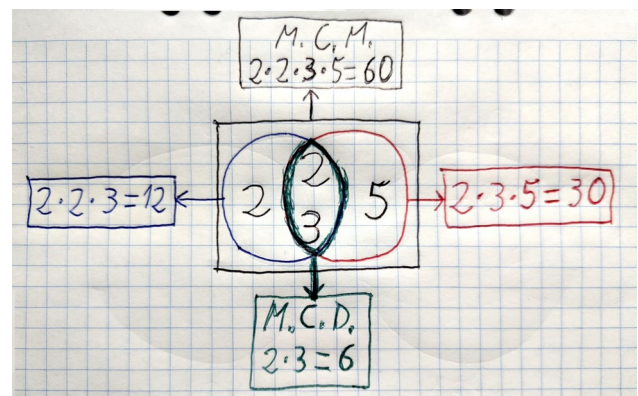 M.C.M.
2·2·3·5=60
2·2·3=12
2
2
3
5
2·3·5=30
M.C.D.
2·3=6